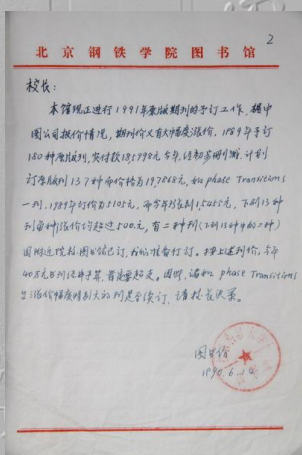 2
北京钢铁学院图书馆
校长：
本馆现正进行1991年原版期刊的予订工作，据中
图公司报价情况，期刊价又有大幅度涨价，1989年予订
180种原版刊，实付款185798元
订原版刊137种而价格为197868元，如phase Transitions
一刊，1989年订价为5105元，而今年涨到15025元，下列13种
刊每种涨价约超过500元，有二种刊（下列13种中的二种）
因附近院校图书馆已订，我们准备停订。按上述刊价，今年
40万元刊经费予算，肯定要超支。因此，诸如phase Transitions
涨价幅度特别大的刊是否续订，请校长决策。
图书馆
1990.6.14